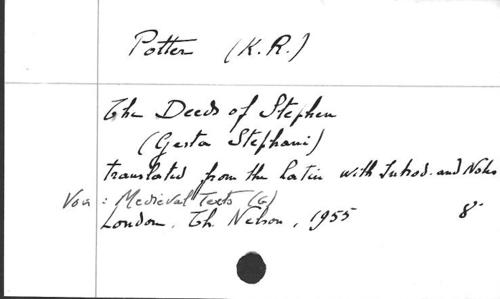 Potter (K.R.)
The Deeds of Stephen
(Gesta Stephani)
translated from the Latin with Introd. and Notes
Voir : Medieval Texts (6)
London, Th. Nelson, 1955 8°